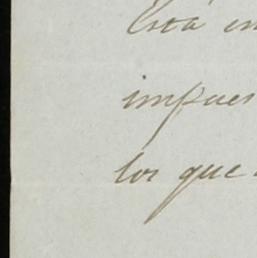 Está en
impues
los que